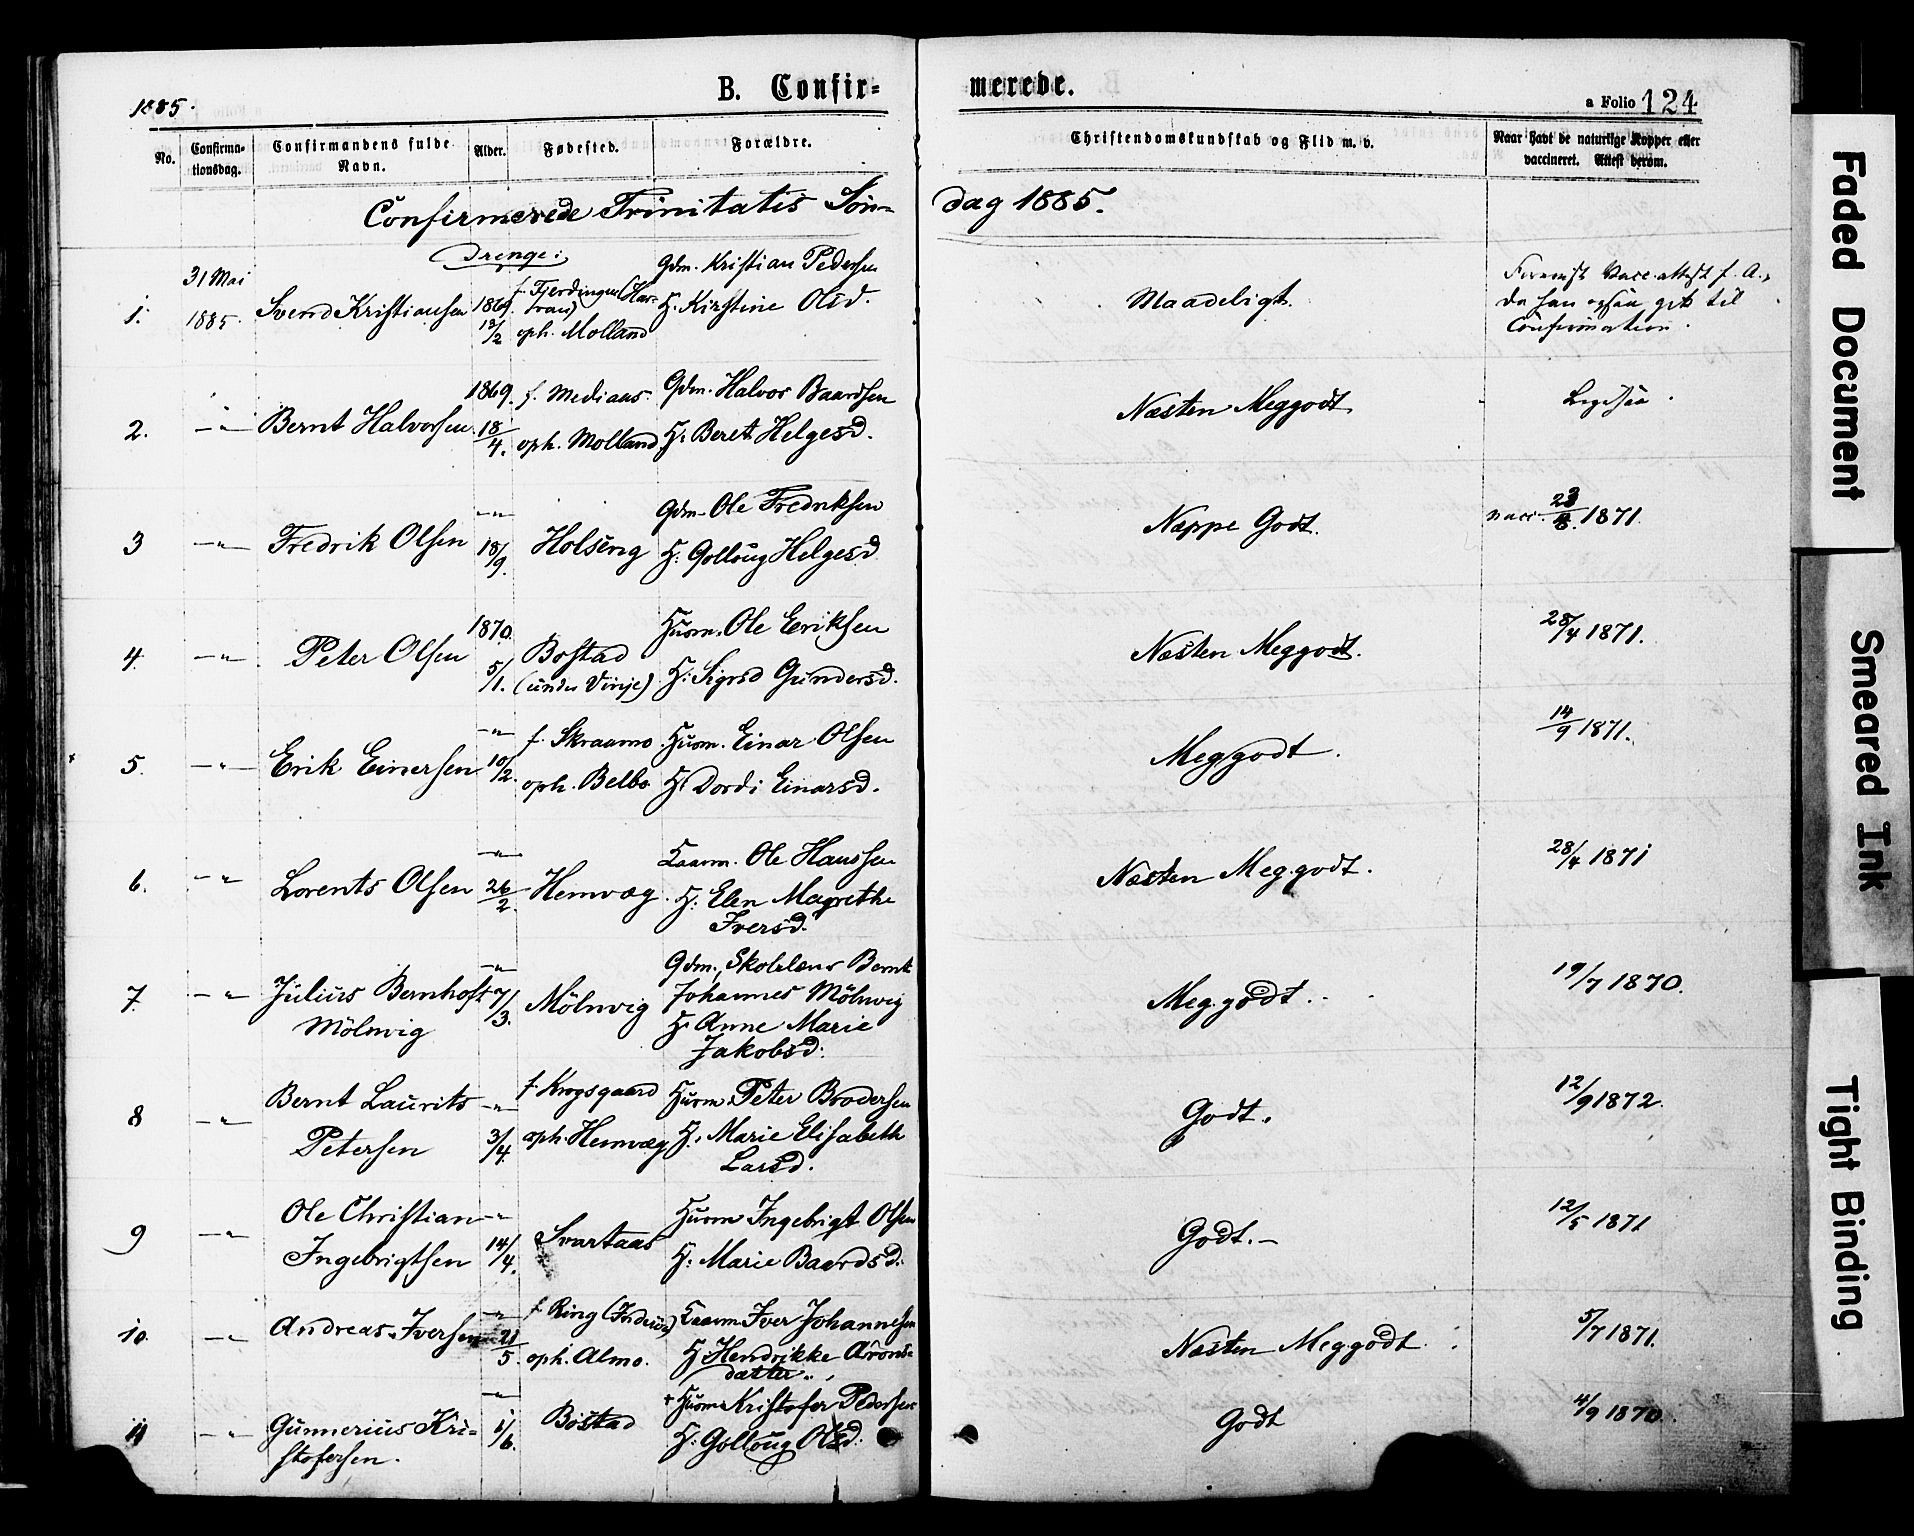 1885.
B. Confir-
merede.
a Folio 124
No.
Confirma-
tionsdag.
Confirmandens fulde
Navn.
Alder.
Fødested.
Forældre.
Christendomskundskab og Flid m. v.
Naar havt de naturlige Kopper eller
vaccineret. Attest derom.
Confirmerede Trinitatis Søn-
dag 1885.
Drenge:
1.
31 Mai
1885.
Svend Kristiansen
1869.
13/2
f. Fjerdingen (Har-
ran)
oph. Molland
Gdm. Kristian Pedersen
H. Kirstine Olsd.
Maadeligt.
Vacc. attest f. A.,
da han
til
Confirmation.
2.
—"—
Bernt Halvorsen
1869.
18/4.
f. Mediaas
oph. Molland
Gdm. Halvor Baardsen
H. Beret Helgesd.
Næsten Meggodt
Ligesaa.
3
—"—
Fredrik Olsen
—"—
18/9.
Holsing
Gdm. Ole Fredriksen
H. Golloug Helgesd
Næppe Godt.
vacc. 23/8. 1871.
4.
—"—
Peter Olsen
1870.
5/1.
Bostad
(under Vinje)
Husm. Ole Eriksen
H. Sigrsd Gundersd.
Næsten Meggodt.
28/4 1871.
5.
—"—
Erik Einersen
—"—
10/2.
f. Skraamo
oph. Belbo
Husm. Einar Olsen
H. Dordi Einarsd.
Meggodt.
14/9 1871.
6.
—"—
Lorents Olsen
—"—
26/2.
Hemvæg
Laarm. Ole Hanssen
H. Elen Magrethe
Iversd.
Næsten Meg.godt.
28/4 1871
7.
—"—
Julius Bernhoft
Mölnvig
—"—
7/3.
Mölnvig
Gdm., Skolelær Bernt
Johannes Mölnvig
H. Anne Marie
Jakobsd.
Meg.godt.
19/7 1870.
8
—"—
Bernt Laurits
Petersen
—"—
3/4.
f. Krogsgaard
oph. Hemvæg
Husm. Peter Brodersen
H. Marie Elisabeth
Larsd.
Godt.
12/9 1872.
9
—"—
Ole Christian
Ingebrigtsen
—"—
14/4.
Svartaas
Husm. Ingebrigt Olsen
H. Marie Baardsd.
Godt.—
12/5 1871
10.
—"—
Andreas Iversen
—"—
21/5.
f. Ring (Inderøen)
oph. Almo.
Laarm. Iver Johannesen
H. Hendrikke Arons-
datter.
Næsten Meg.godt.
5/7 1871.
11
—"—
Gunnerius Kri-
stofersen.
—"—
1/6.
Bostad
+ Husm. Kristofer Pedersen
H. Golloug Olsd.
Godt
4/9 1870.
Faded Document
Smeared Ink
Tight Binding